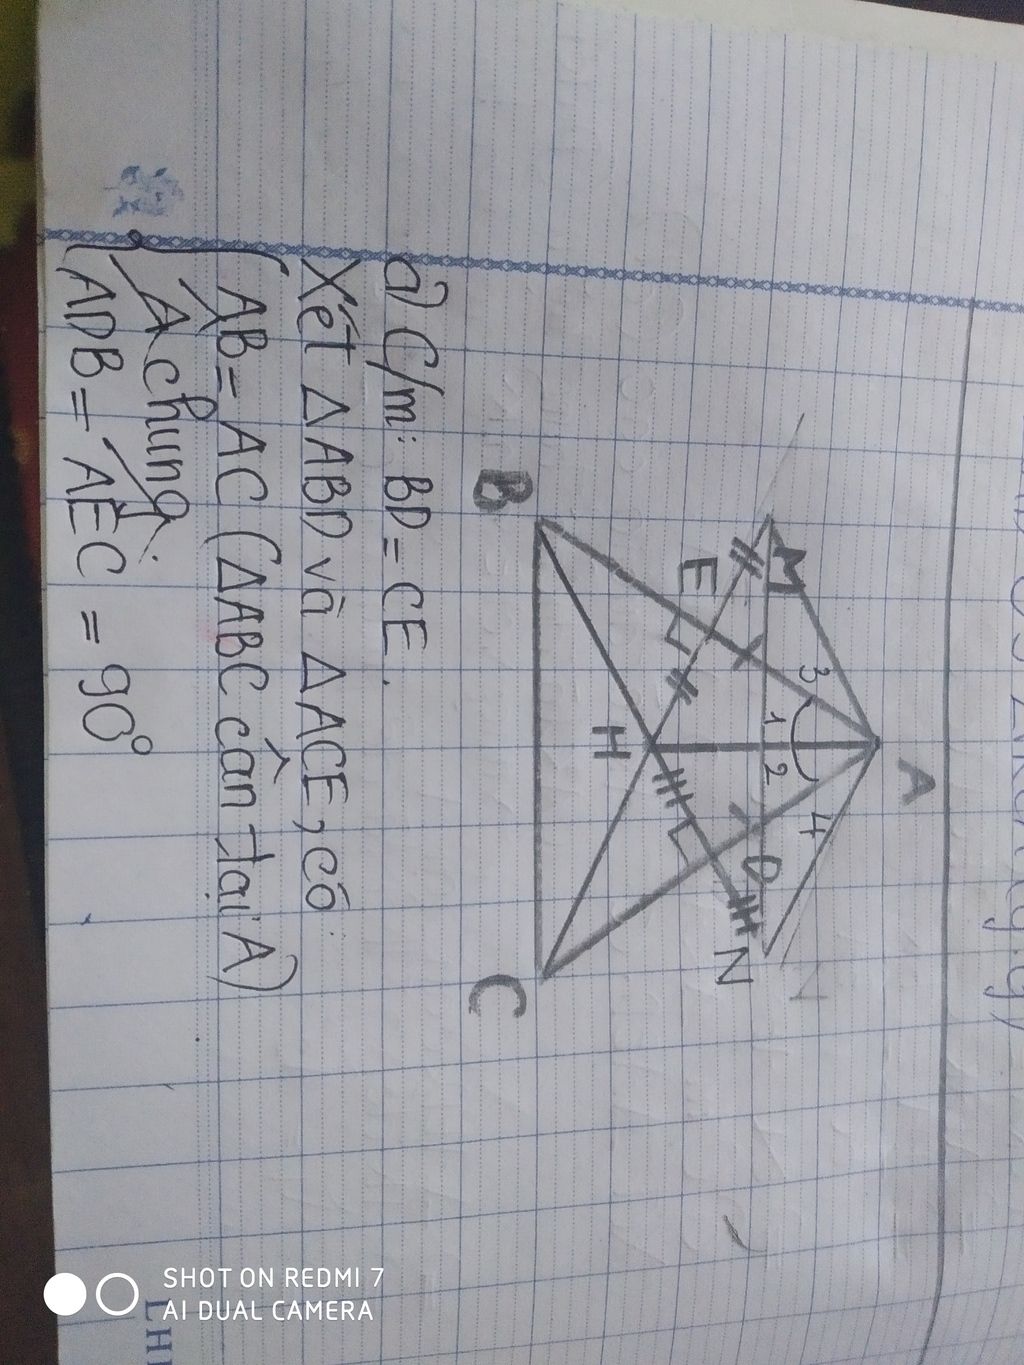 A
M
3
4
1
2
E
D
N
H
B
C
a) C/m: BD = CE.
Xét ΔABD và ΔACE, có
AB = AC (ΔABC cân tại A)
A chung
ADB = AEC = 90°
SHOT ON REDMI 7
AI DUAL CAMERA